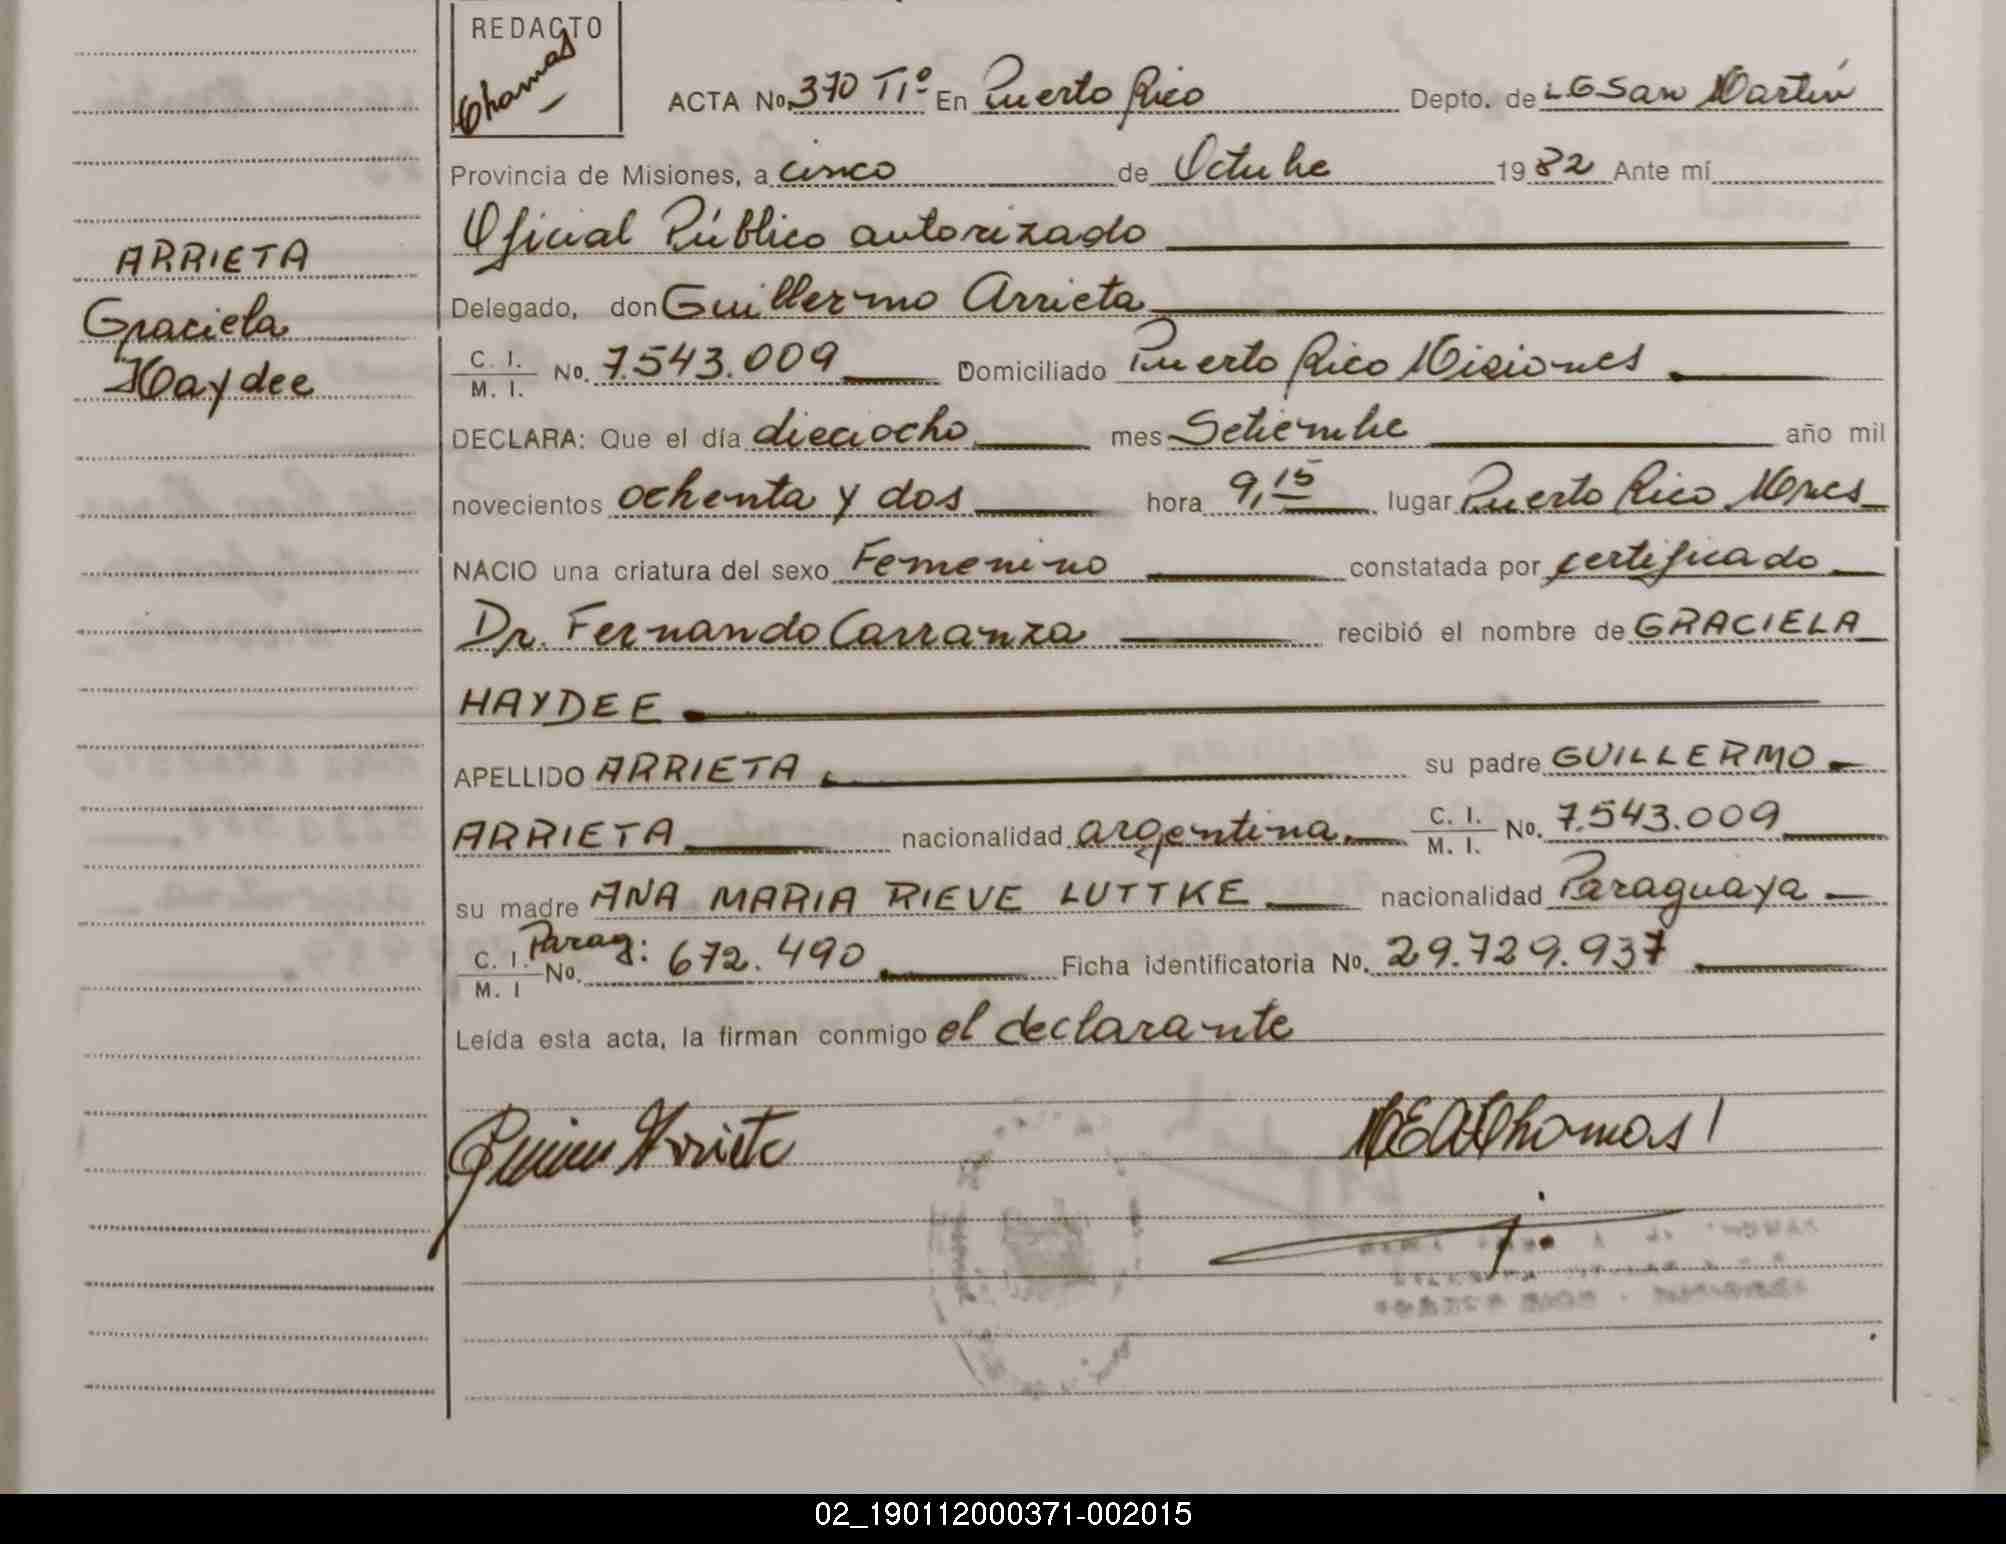 REDACTO
Thomas
ACTA No. 370 T1º En Puerto Rico Depto. de LG San Martín
Provincia de Misiones, a cinco de Octubre 1982 Ante mí
Oficial Público autorizado
Delegado, don Guillermo Arrieta
C. I. M. I. No. 7.543.009 Domiciliado Puerto Rico Misiones
DECLARA: Que el día dieciocho mes Setiembre año mil
novecientos ochenta y dos hora 9,15 lugar Puerto Rico Mnes
NACIO una criatura del sexo Femenino constatada por certificado
Dr. Fernando Carranza recibió el nombre de GRACIELA
HAYDEE
APELLIDO ARRIETA su padre GUILLERMO
ARRIETA nacionalidad argentina. C. I. M. I. No. 7.543.009
su madre ANA MARIA RIEVE LUTTKE nacionalidad Paraguaya
C. I. M. I No. Parag: 672.490 Ficha identificatoria No. 29.729.937
Leída esta acta, la firman conmigo el declarante
ARRIETA
Graciela
Haydee
Arrieta
Thomas
02_190112000371-002015